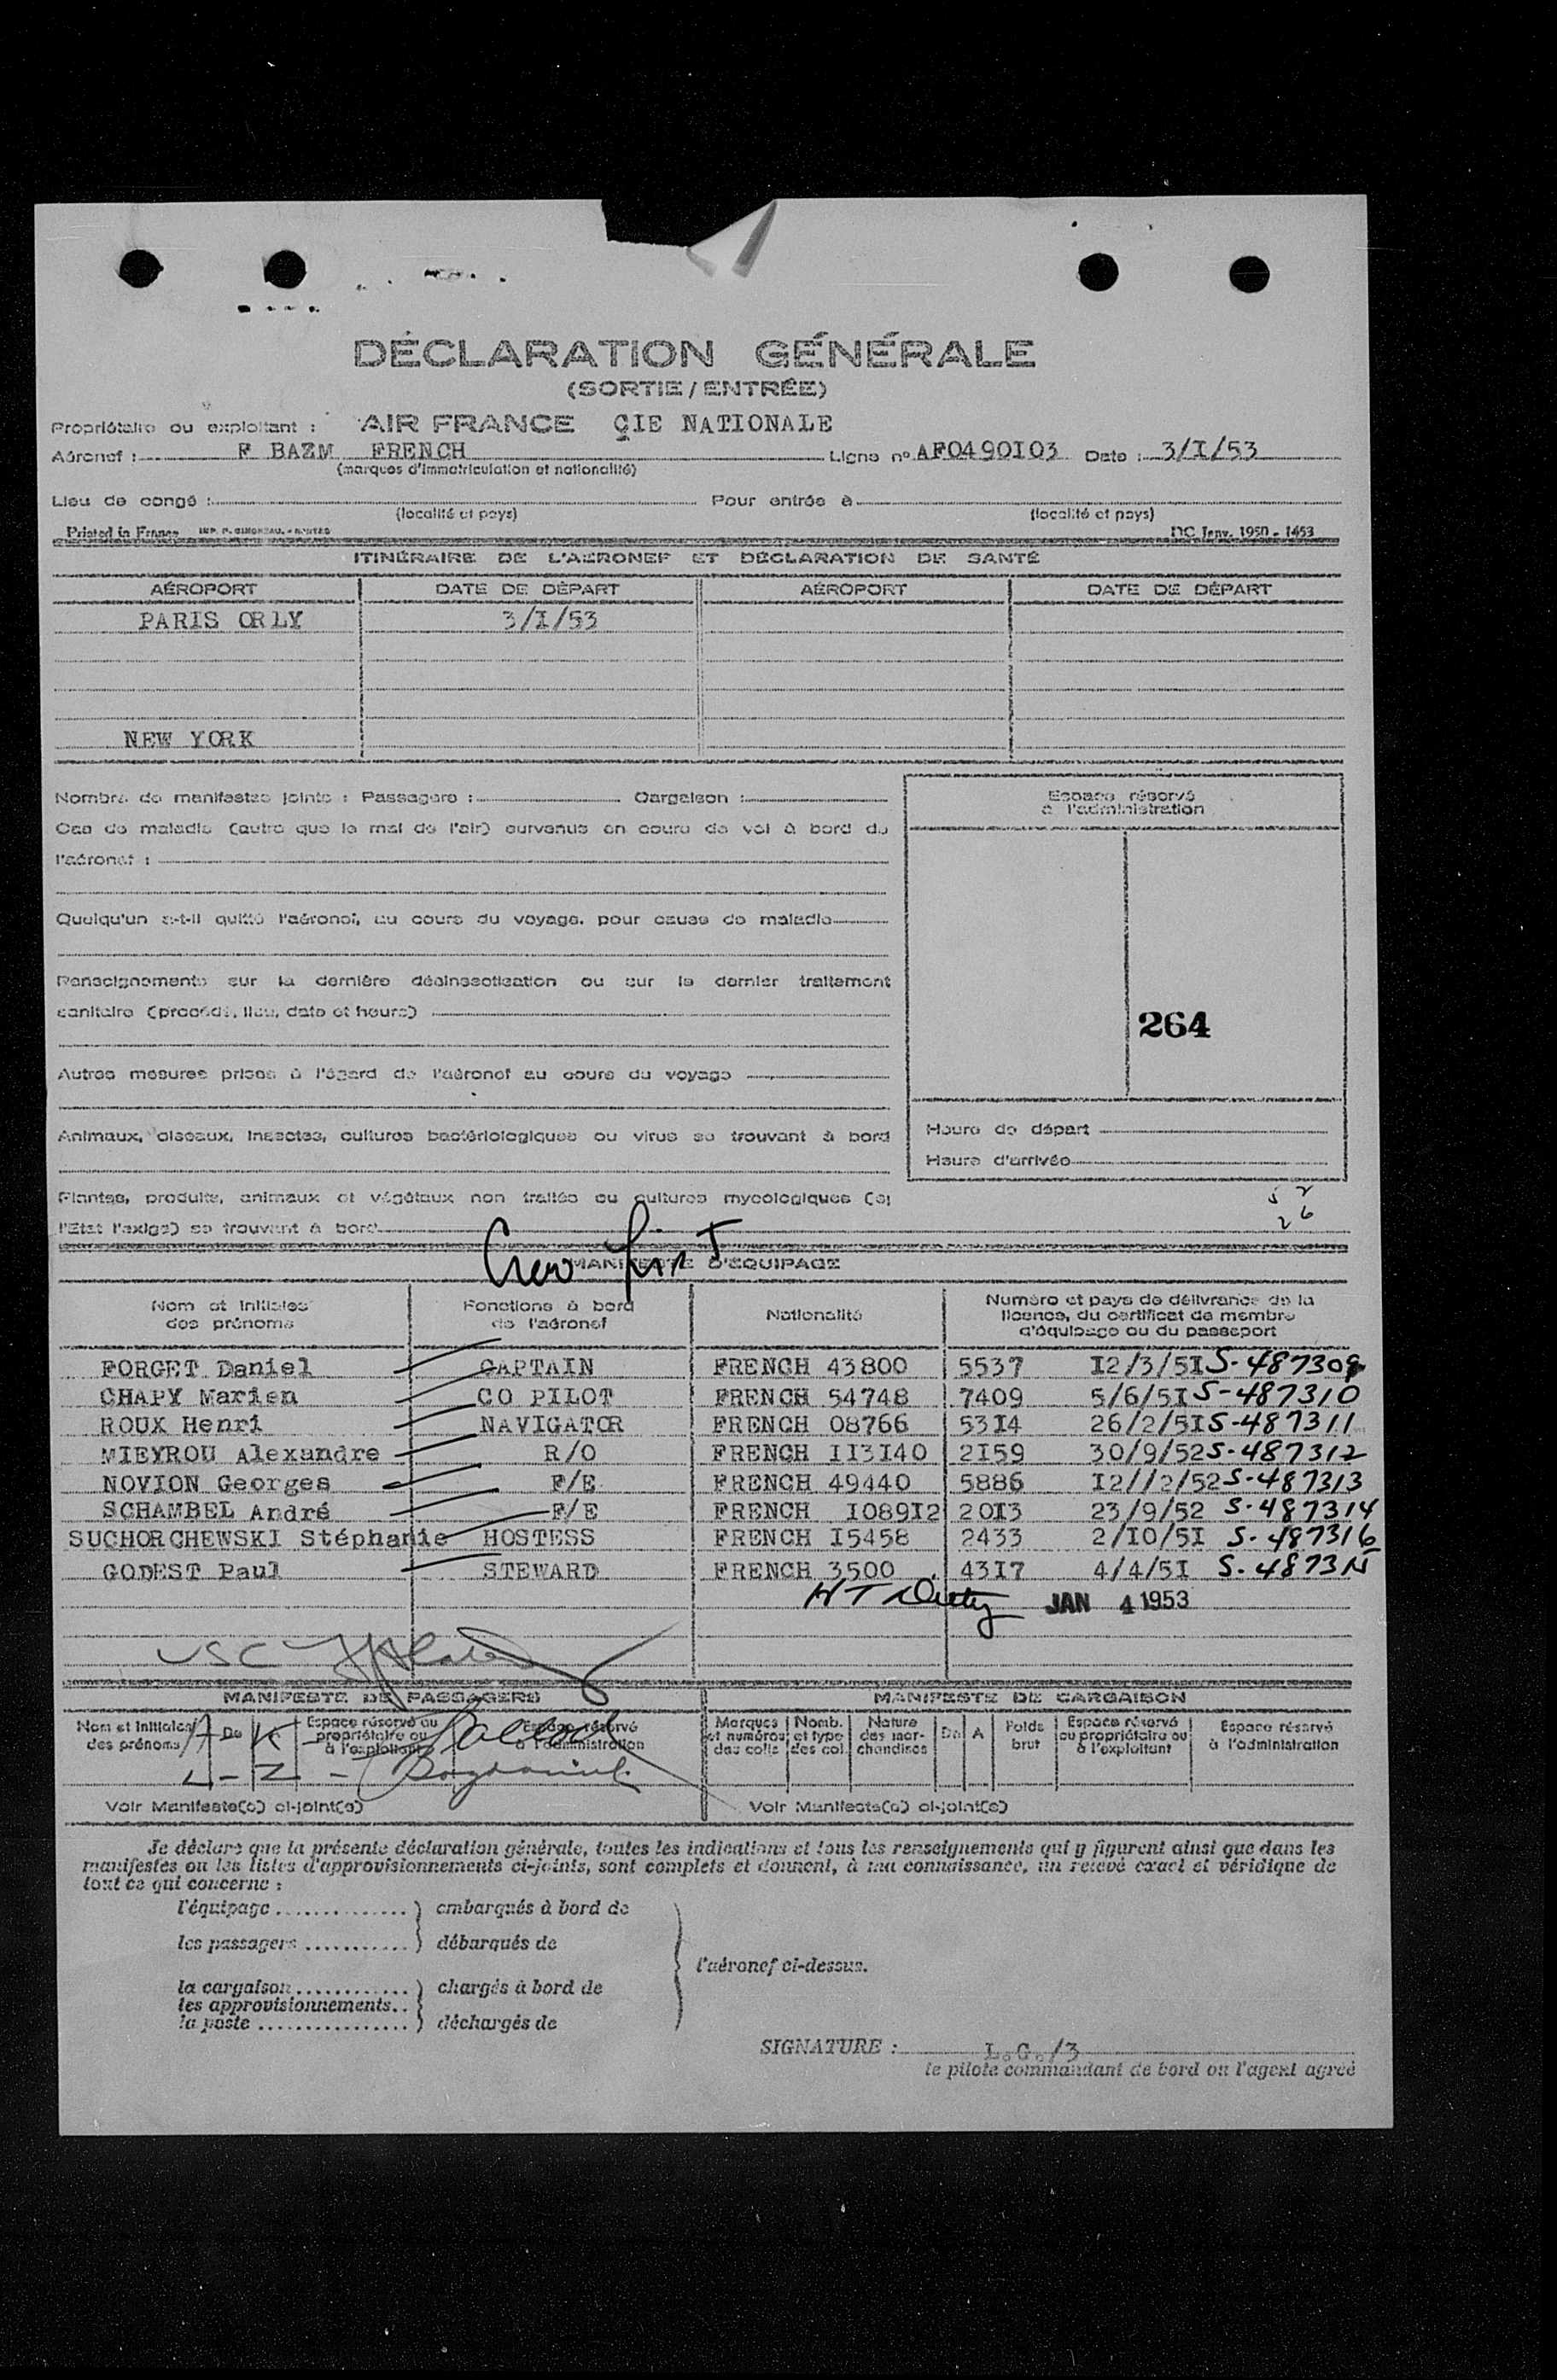 DÉCLARATION GÉNÉRALE
(SORTIE / ENTRÉE)
Propriétaire ou exploitant : AIR FRANCE CIE NATIONALE
Aéronef : F BAZM FRENCH Ligne nº AF0490I03 Date : 3/I/53
(marques d'immatriculation et nationalité)
Lieu de congé : Pour entrée à
(localité et pays) (localité et pays)
Printed in France DC Janv. 1950 - 1453
ITINÉRAIRE DE L'AÉRONEF ET DÉCLARATION DE SANTÉ
AÉROPORT DATE DE DÉPART AÉROPORT DATE DE DÉPART
PARIS ORLY 3/I/53
NEW YORK
Nombre de manifestes joints : Passagers : Cargaison :
Cas de maladie (autre que le mal de l'air) survenus en cours de vol à bord de
l'aéronef :
Quelqu'un a-t-il quitté l'aéronef, au cours du voyage, pour cause de maladie
Renseignements sur la dernière désinsectisation ou sur le dernier traitement
sanitaire (procédé, lieu, date et heure)
Autres mesures prises à l'égard de l'aéronef au cours du voyage
Animaux, oiseaux, insectes, cultures bactériologiques ou virus se trouvant à bord
Plantes, produits, animaux et végétaux non traités ou cultures mycologiques (si
l'Etat l'exige) se trouvant à bord
Espace réservé
à l'administration
264
Heure de départ
Heure d'arrivée
5 2
2 6
Crew list
MANIFESTE D'ÉQUIPAGE
Nom et initiales des prénoms Fonctions à bord de l'aéronef Nationalité Numéro et pays de délivrance de la licence, du certificat de membre d'équipage ou du passeport
FORGET Daniel CAPTAIN FRENCH 43800 5537 I2/3/5I S-487309
CHAPY Marien CO PILOT FRENCH 54748 7409 5/6/5I S-487310
ROUX Henri NAVIGATOR FRENCH 08766 53I4 26/2/5I S-487311
MIEYROU Alexandre R/O FRENCH II3I40 2I59 30/9/52 S-487312
NOVION Georges F/E FRENCH 49440 5886 I2//2/52 S-487313
SCHAMBEL André F/E FRENCH I089I2 20I3 23/9/52 S-487314
SUCHORCHEWSKI Stéphanie HOSTESS FRENCH I5458 2433 2/IO/5I S-487316
GODEST Paul STEWARD FRENCH 3500 43I7 4/4/5I S-48731
JAN 4 1953
USC
MANIFESTE DE PASSAGERS MANIFESTE DE CARGAISON
Nom et initiales des prénoms De A Espace réservé au propriétaire ou à l'exploitant Espace réservé à l'administration
Marques et numéros des colis Nomb. et type des col. Nature des marchandises De A Poids brut Espace réservé au propriétaire ou à l'exploitant Espace réservé à l'administration
Voir Manifeste(s) ci-joint(s) Voir Manifeste(s) ci-joint(s)
Je déclare que la présente déclaration générale, toutes les indications et tous les renseignements qui y figurent ainsi que dans les
manifestes ou les listes d'approvisionnements ci-joints, sont complets et donnent, à ma connaissance, un relevé exact et véridique de
tout ce qui concerne :
l'équipage .............. ) embarqués à bord de
les passagers ........... ) débarqués de
l'aéronef ci-dessus.
la cargaison ............ ) chargés à bord de
les approvisionnements ..
la poste ................ ) déchargés de
SIGNATURE : L.G./3
le pilote commandant de bord ou l'agent agréé